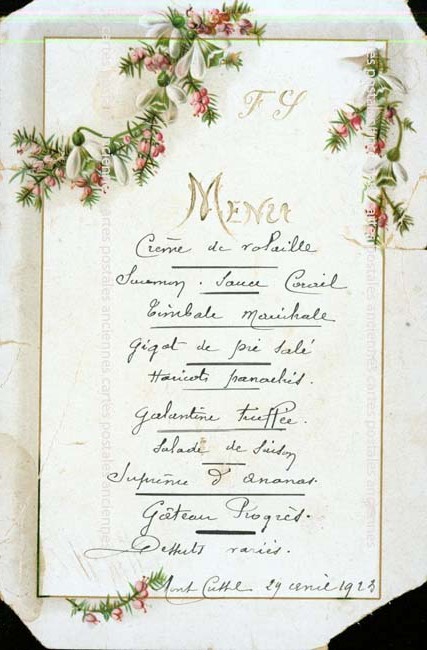 F S
MENU
Crème de volaille
Saumon. Sauce Corail
Timbale Maréchale
Gigot de pré salé
Haricots panachés.
Galantine truffée.
Salade de Saison
Suprême d'Ananas.
Gâteau Progrès.
Desserts variés.
Mont 29 avril 1923
cartes postales anciennes cartes postales anciennes